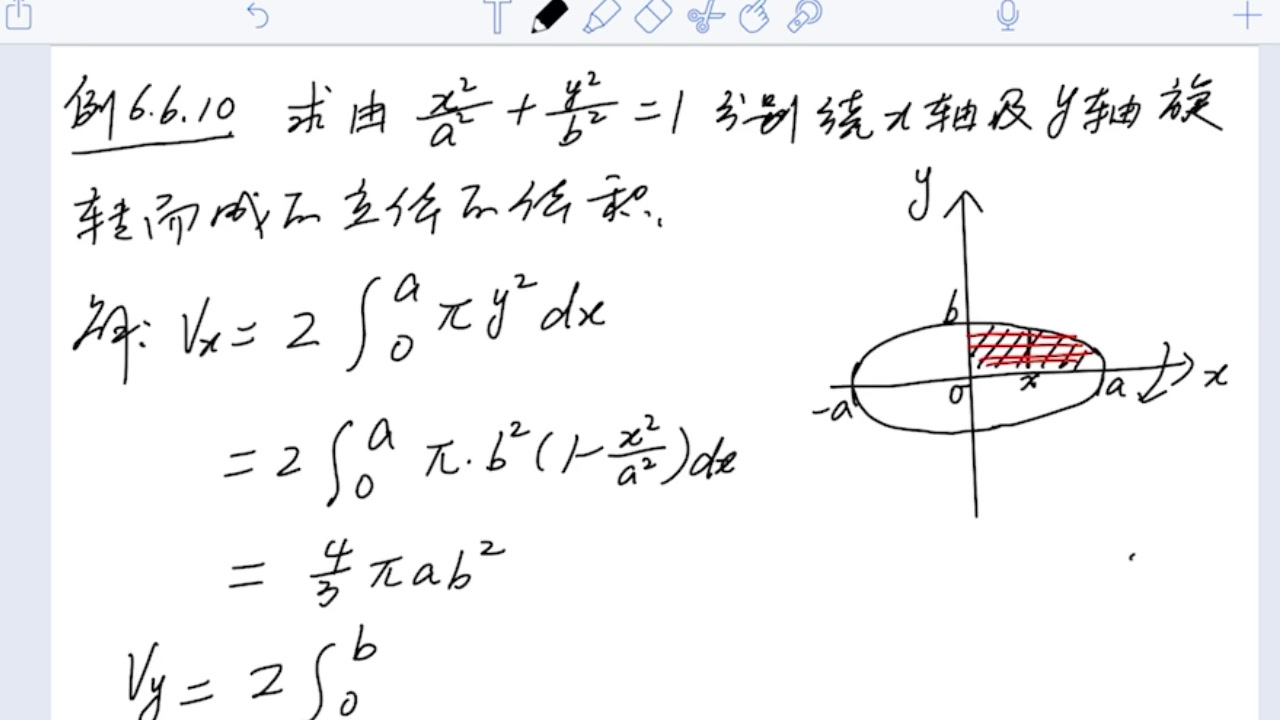 例6.6.10 求由 x²/a² + y²/b² = 1 分别绕x轴及y轴旋
转而成的立体的体积.
解: Vx = 2 ∫₀ᵃ π y² dx
= 2 ∫₀ᵃ π · b² (1 - x²/a²) dx
= 4/3 π a b²
Vy = 2 ∫₀ᵇ
y
b
-a
o
x
a
x